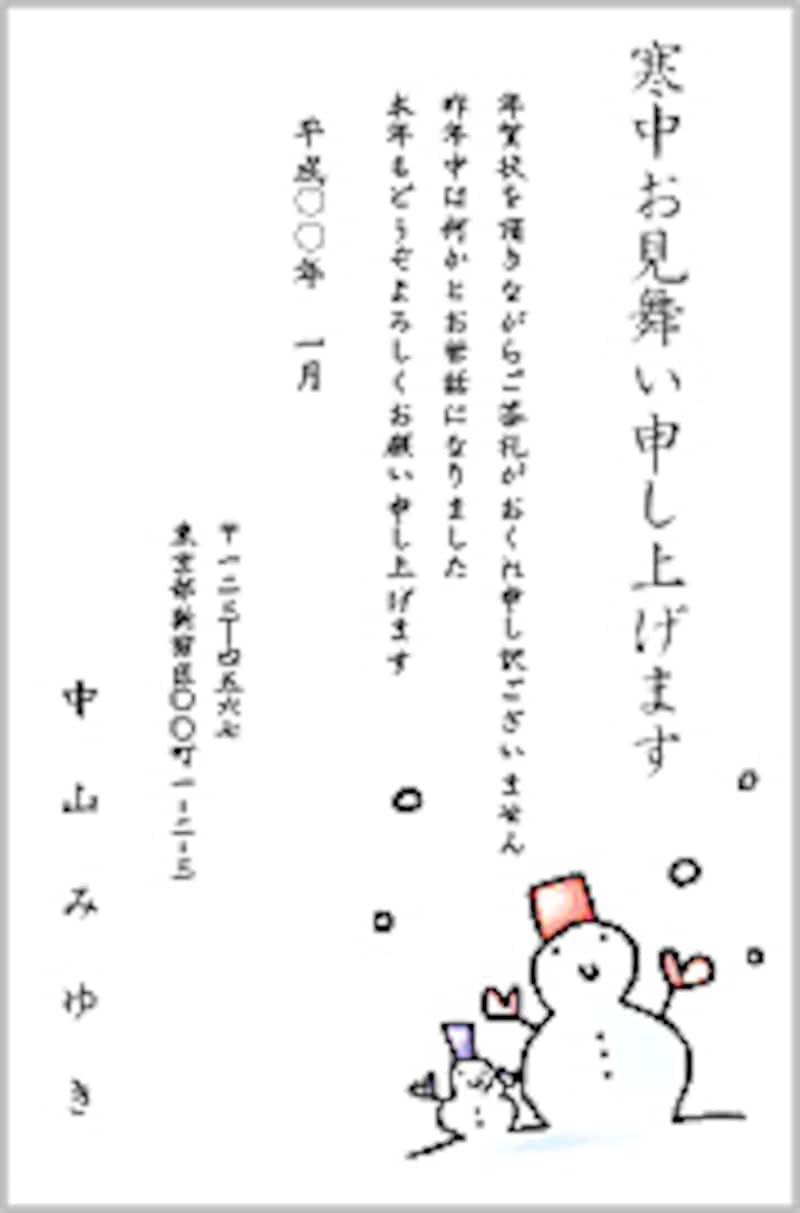 寒中お見舞い申し上げます
年賀状を頂きながらご答礼がおくれ申し訳ございません
昨年中は何かとお世話になりました
本年もどうぞよろしくお願い申し上げます
平成〇〇年 一月
〒一二三-四五六七
東京都新宿区〇〇町一-二-三
中山みゆき